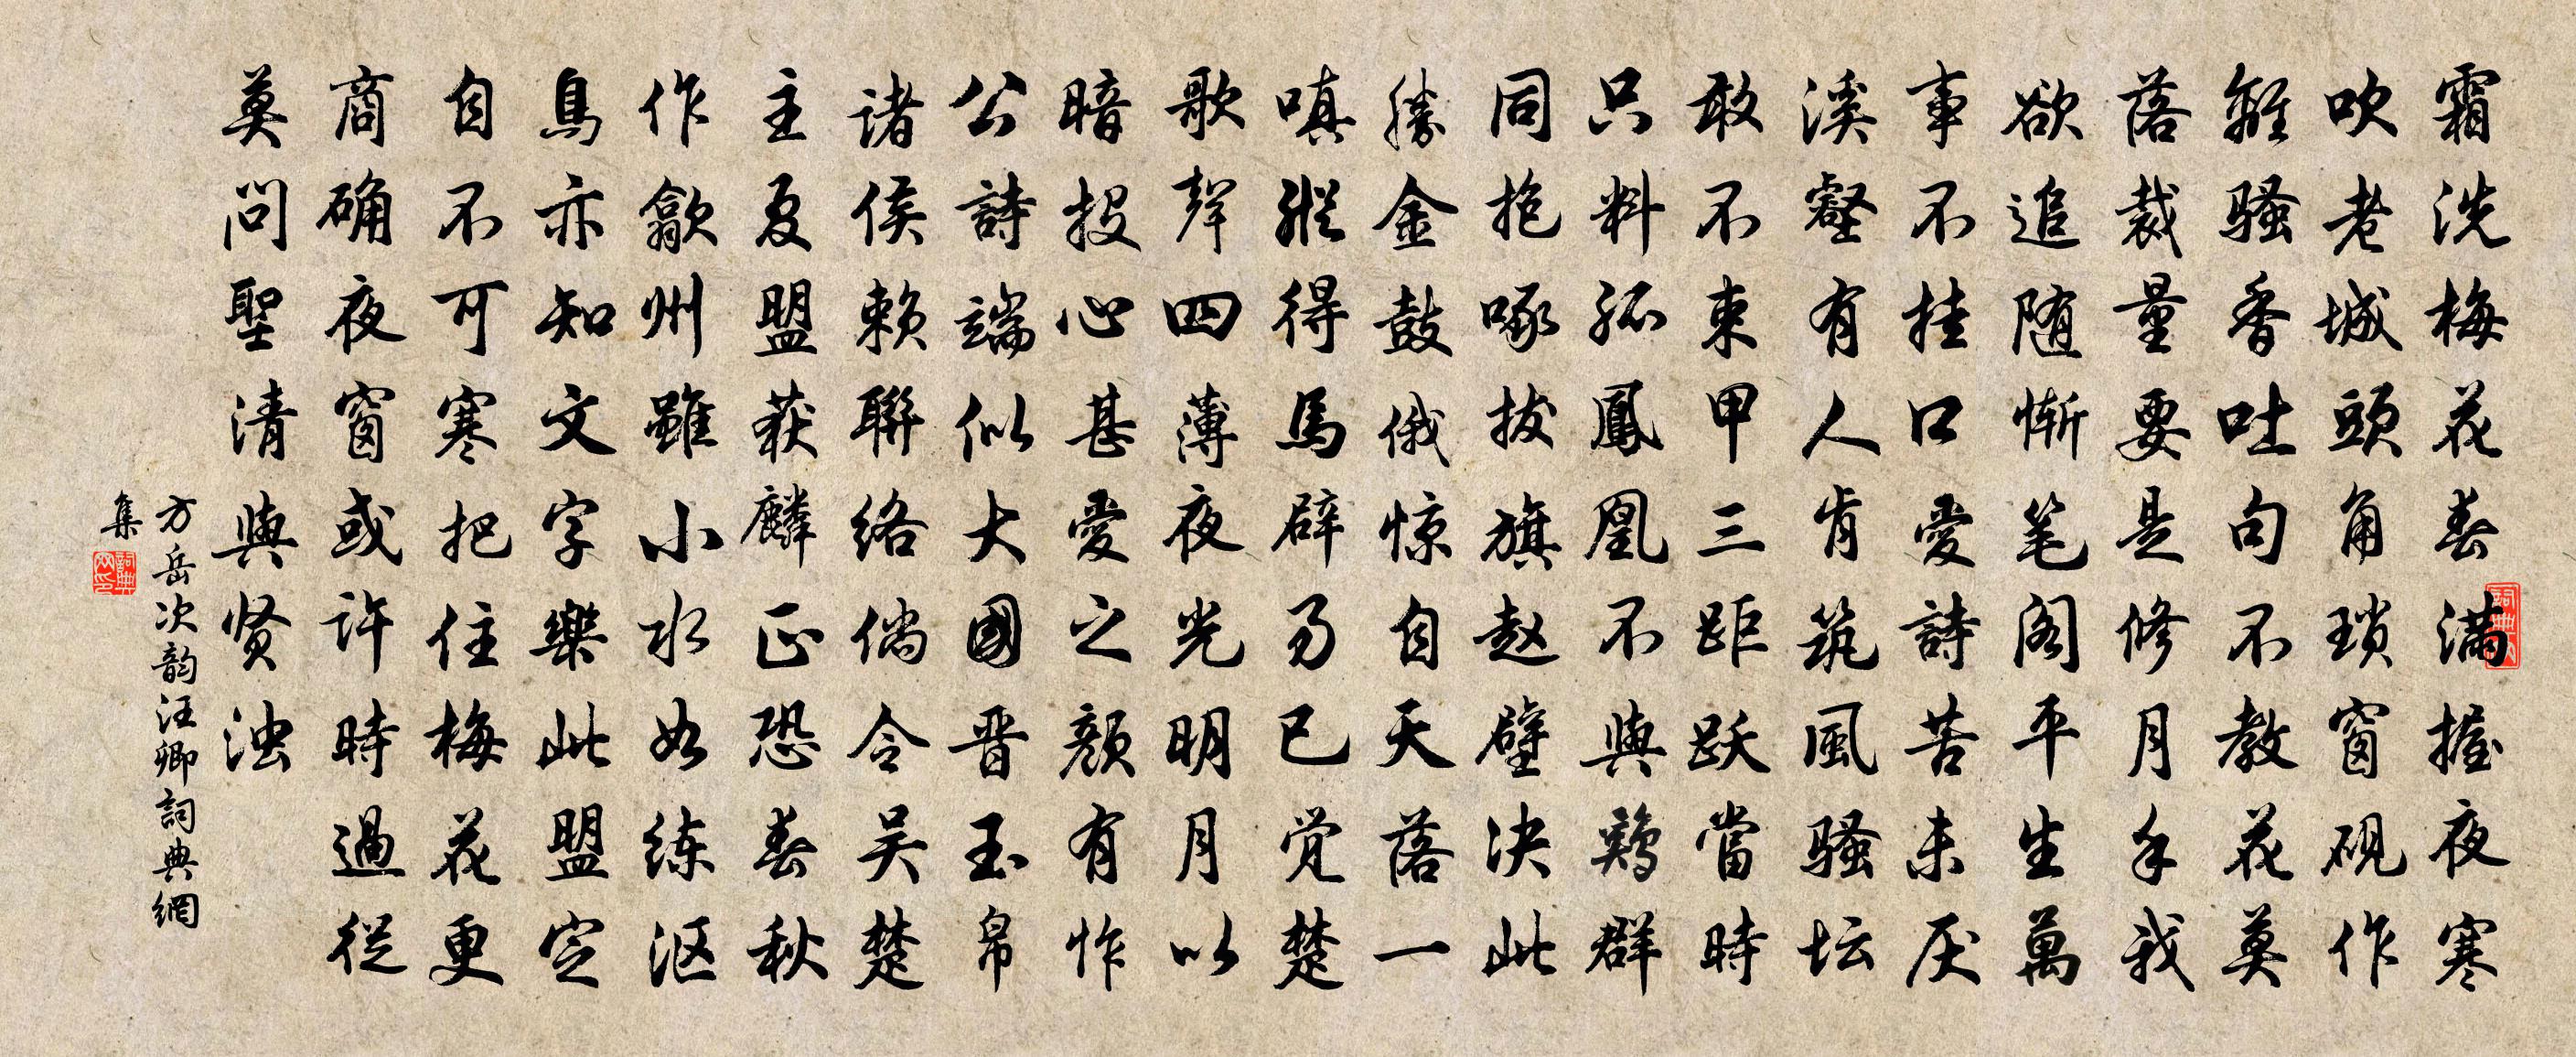 霜洗梅花春满握夜寒
吹老城頭角琐窗砚作
離骚香吐句不教花莫
落裁量要是修月手我
欲追随惭笔阁平生萬
事不挂口愛詩苦未厌
溪壑有人肯筑風骚坛
敢不束甲三距跃當時
只料孤鳳凰不與鶏群
同抱啄拔旗赵壁决此
勝金鼓俄惊自天落一
嗔縱得馬辟易已觉楚
歌聲四薄夜光明月以
暗投心甚愛之颜有怍
公詩端似大國晋玉帛
诸侯赖聯络倘令吴楚
主夏盟获麟正恐春秋
作歙州雖小水如练沤
鳥亦知文字樂此盟定
自不可寒把住梅花更
商确夜窗或许時過從
莫問聖清與贤浊
方岳次韵汪卿詞典網
集
詞典网印